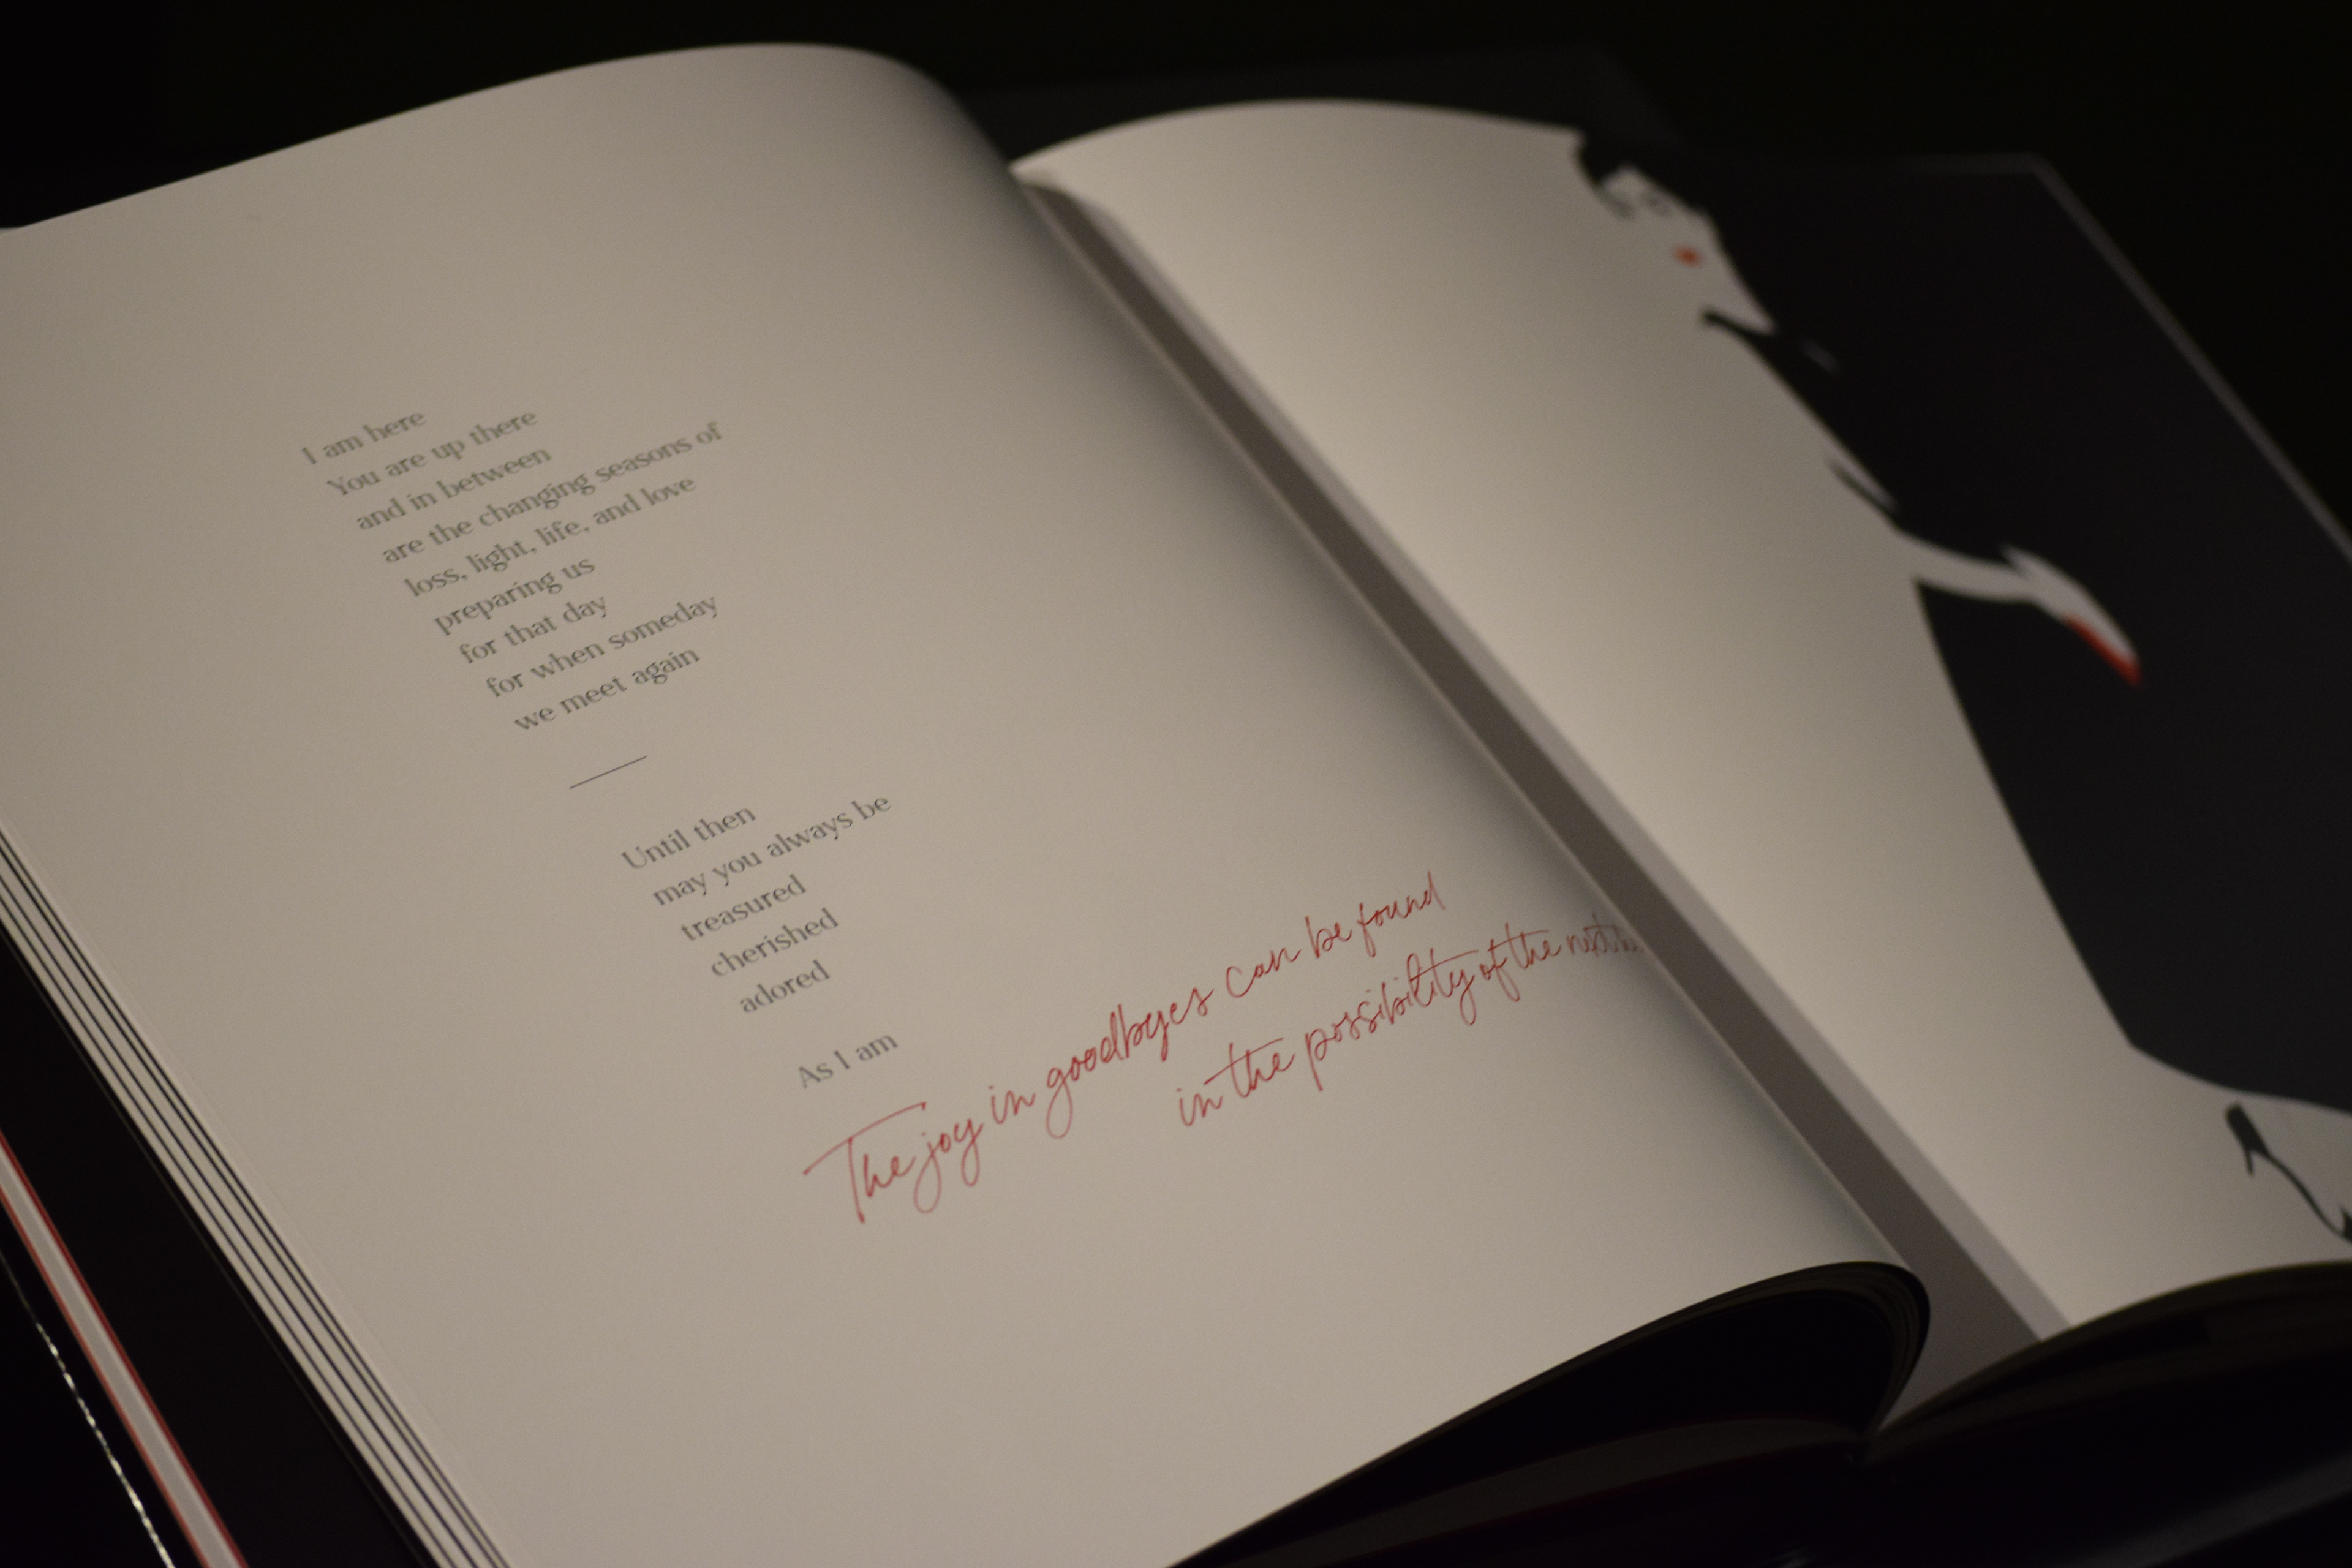 I am here
You are up there
and in between
are the changing seasons of
loss, light, life, and love
preparing us
for that day
for when someday
we meet again
Until then
may you always be
treasured
cherished
adored
As I am
The joy in goodbyes can be found
in the possibility of the next